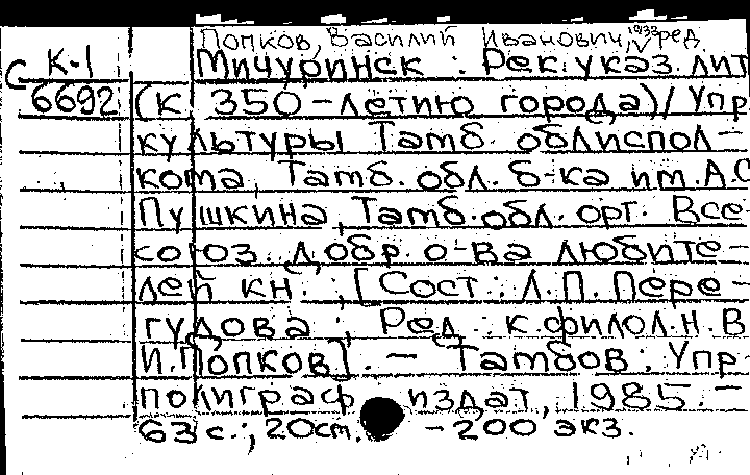 Попков, Василий Иванович, 1933 ред.
С К-1 Мичуринск : Рек. указ. лит
6692 (к 350-летию города) / Упр
культуры Тамб. облиспол-
кома, Тамб. обл. б-ка им. А.С
Пушкина, Тамб. обл. орг. Все
союз. добр. о-ва любите-
лей кн. ; [Сост. : Л.П. Пере-
гудова ; Ред. : к. филол. н. В
И. Попков]. — Тамбов : Упр
полиграф издат, 1985. —
63 с. ; 20 cm. — 200 экз.